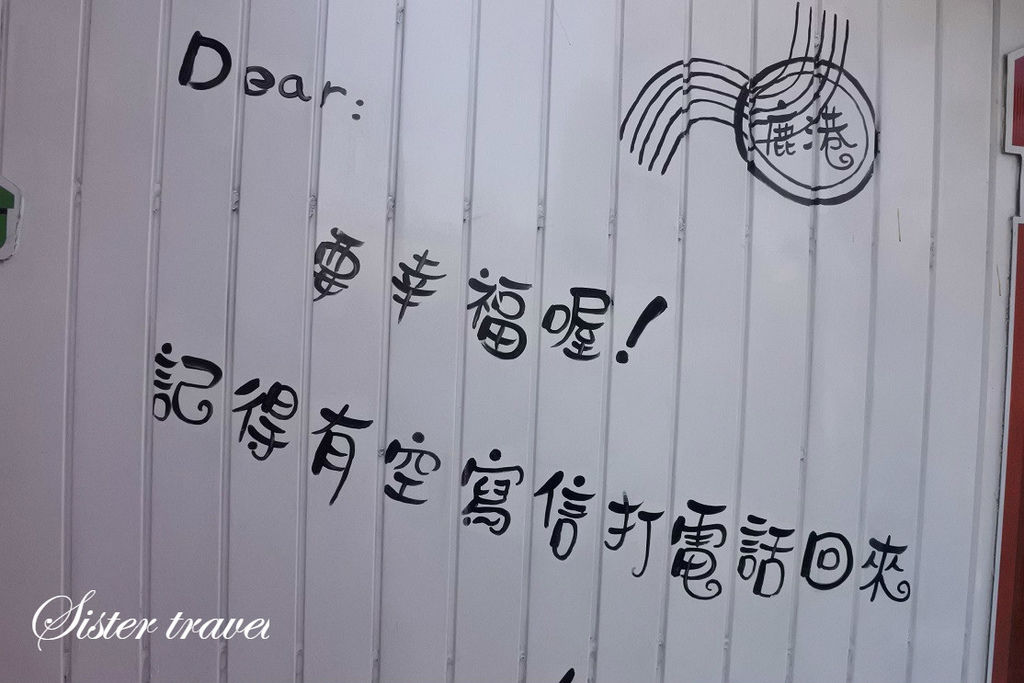 Dear:
鹿港
要幸福喔!
記得有空寫信打電話回來
Sister travel